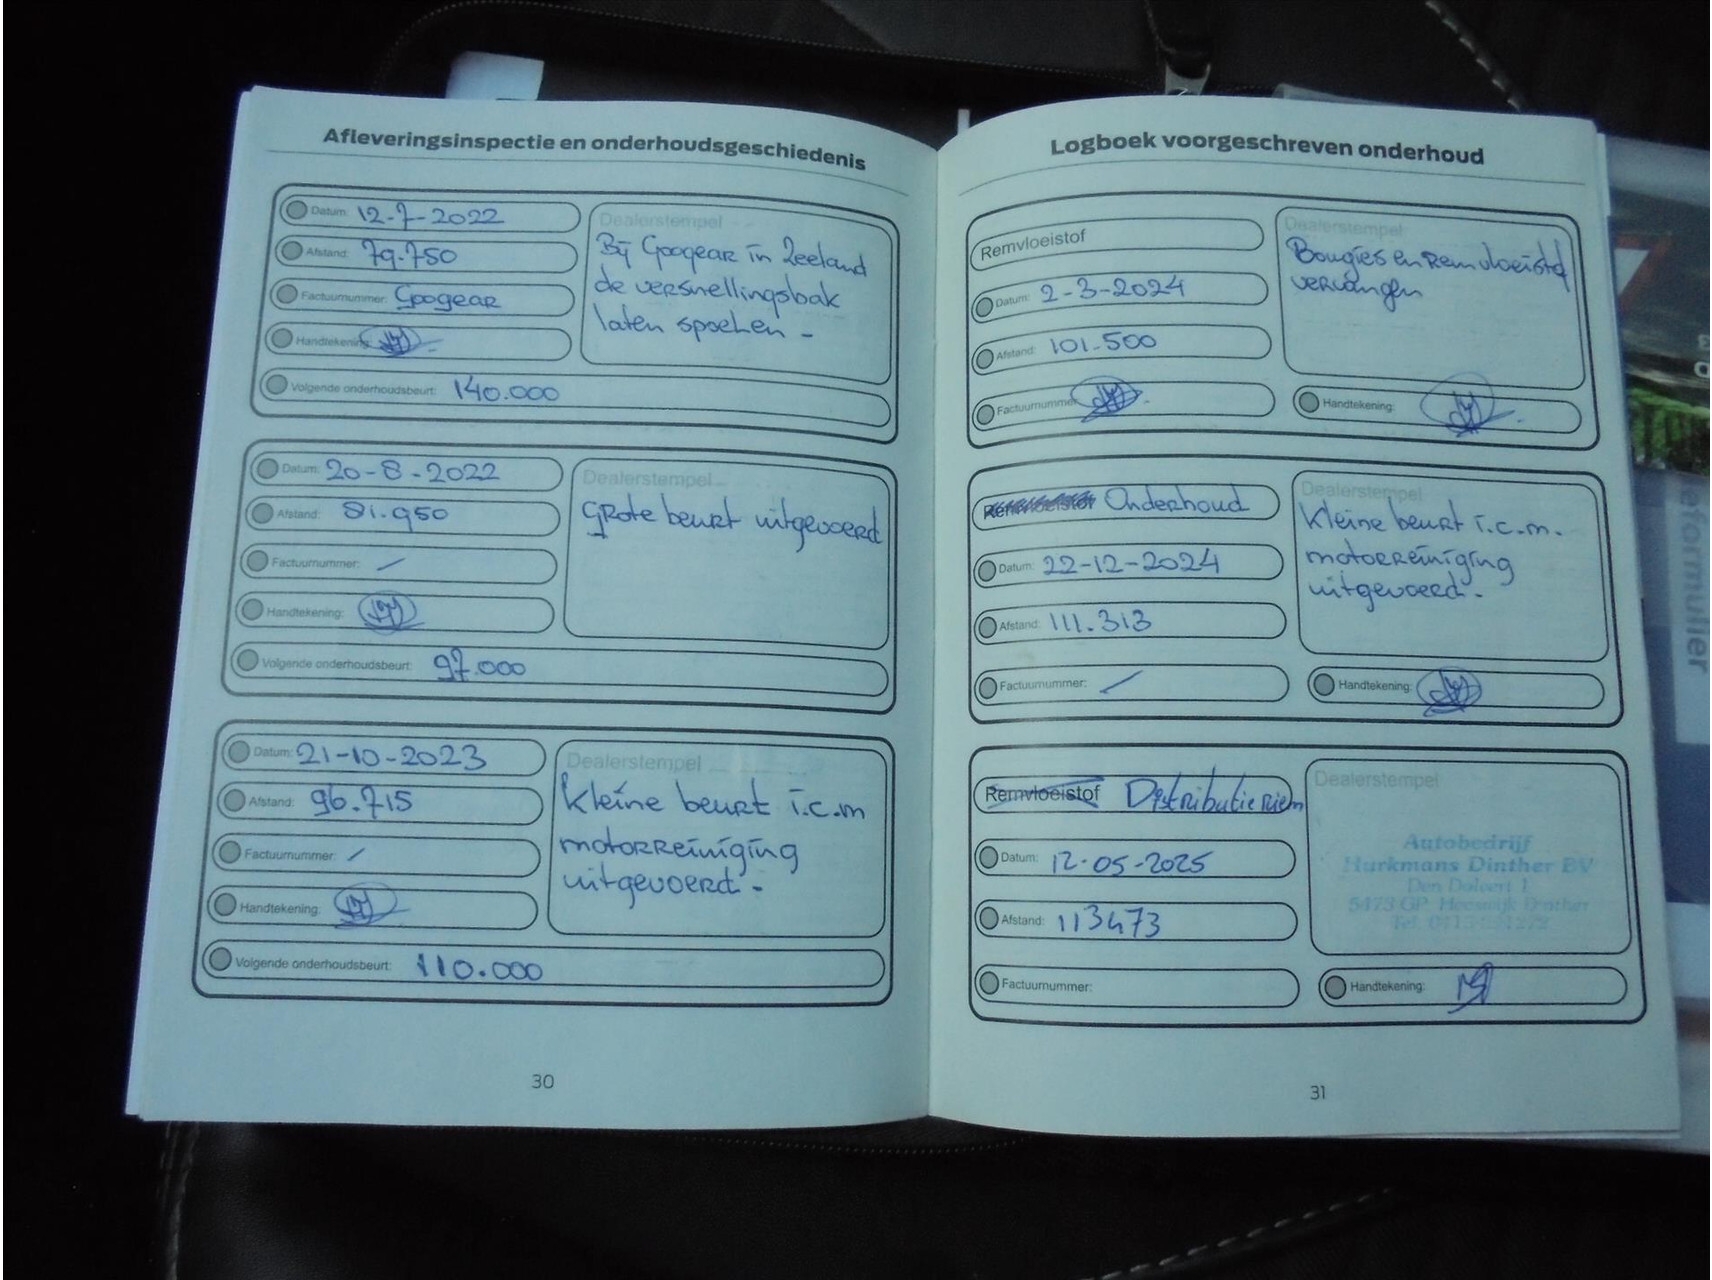 Afleveringsinspectie en onderhoudsgeschiedenis
Datum: 12-7-2022
Afstand: 79.750
Factuurnummer: Gpogear
Handtekening:
Volgende onderhoudsbeurt: 140.000
Dealerstempel
Bij Gpogear in Zeeland
de versnellingsbak
laten spoelen -
Datum: 20-8-2022
Afstand: 81.950
Factuurnummer: /
Handtekening:
Volgende onderhoudsbeurt: 97.000
Dealerstempel
Grote beurt uitgevoerd
Datum: 21-10-2023
Afstand: 96.715
Factuurnummer: /
Handtekening:
Volgende onderhoudsbeurt: 110.000
Dealerstempel
Kleine beurt i.c.m
motorreiniging
uitgevoerd -
30
Logboek voorgeschreven onderhoud
Remvloeistof
Datum: 2-3-2024
Afstand: 101.500
Factuurnummer
Dealerstempel
Bougies en Remvloeistof
vervangen
Handtekening:
Remvloeistof Onderhoud
Datum: 22-12-2024
Afstand: 111.313
Factuurnummer: /
Dealerstempel
Kleine beurt i.c.m.
motorreiniging
uitgevoerd.-
Handtekening:
Remvloeistof Distributieriem
Datum: 12-05-2025
Afstand: 113473
Factuurnummer:
Dealerstempel
Autobedrijf
Harkmans Dinther BV
5473 GP Heeswijk Dinther
Handtekening:
31
eformulier